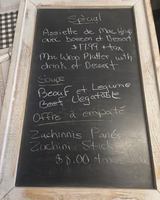 Spécial
Assiette de Mac Wrap
avec boisson et Dessert
$17.99 + tax
Mac Wrap Platter with
drink et Dessert
Soupe
Beouf et Legume
Beef Vegetable
Offre à emporté
Zachinnis Panés
Zachini Sticks
$8.00 + tax